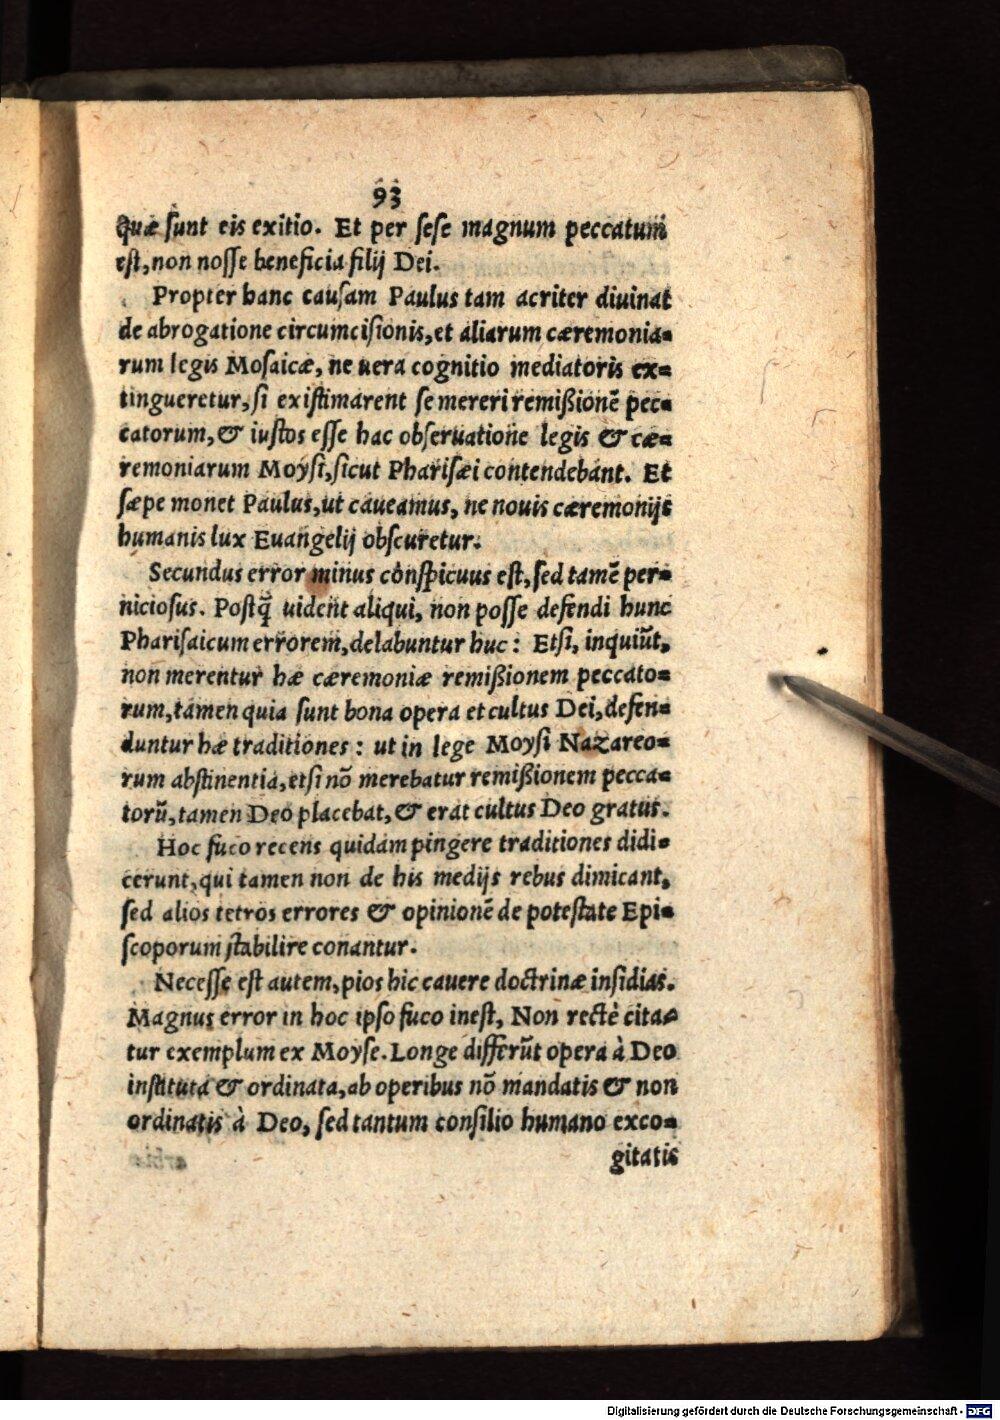 93
Quæ ſunt eis exitio. Et per ſeſe magnum peccatum
eſt, non noſſe beneficia filij Dei.
Propter hanc cauſam Paulus tam acriter diuinat
de abrogatione circumciſionis, et aliarum cæremonia-
rum legis Moſaicæ, ne uera cognitio mediatoris ex-
tingueretur, ſi exiſtimarent ſe mereri remißionē pec-
catorum, & iuſtos eſſe hac obſeruatione legis & cæ-
remoniarum Moyſi, ſicut Phariſæi contendebant. Et
ſæpe monet Paulus, ut caueamus, ne nouis cæremonijs
humanis lux Euangelij obſcuretur.
Secundus error minus cōnſpicuus eſt, ſed tamē per-
nicioſus. Poſtq̃ uident aliqui, non poſſe defendi hunc
Phariſaicum errorem, delabuntur huc: Etſi, inquiūt,
non merentur hæ cæremoniæ remißionem peccato-
rum, tamen quia ſunt bona opera et cultus Dei, defen-
duntur hæ traditiones: ut in lege Moyſi Nazareo-
rum abſtinentia, etſi nō merebatur remißionem pecca-
torū, tamen Deo placebat, & erat cultus Deo gratus.
Hoc fuco recens quidam pingere traditiones didi-
cerunt, qui tamen non de his medijs rebus dimicant,
ſed alios tetros errores & opinionē de poteſtate Epi-
ſcoporum ſtabilire conantur.
Neceſſe eſt autem, pios hic cauere doctrinæ inſidias.
Magnus error in hoc ipſo fuco ineſt, Non rectè cita-
tur exemplum ex Moyſe. Longe differūt opera à Deo
inſtituta & ordinata, ab operibus nō mandatis & non
ordinatis à Deo, ſed tantum conſilio humano exco-
gitatis
Digitalisierung gefördert durch die Deutsche Forschungsgemeinschaft - DFG